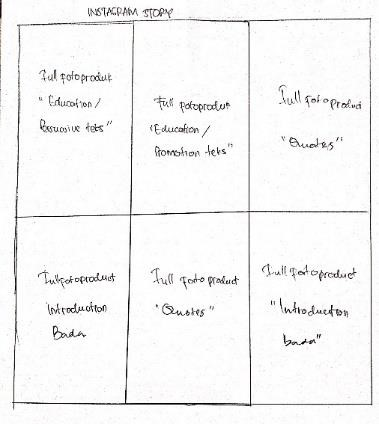 INSTAGRAM STORY
Full fotoproduk
"Education/
Persuasive teks"
Full fotoproduk
"Education/
Promotion teks"
Full fotoproduct
"Quotes"
Full fotoproduct
Introduction
Bada
Full fotoproduct
"Quotes"
Full fotoproduct
"Introduction
bada"